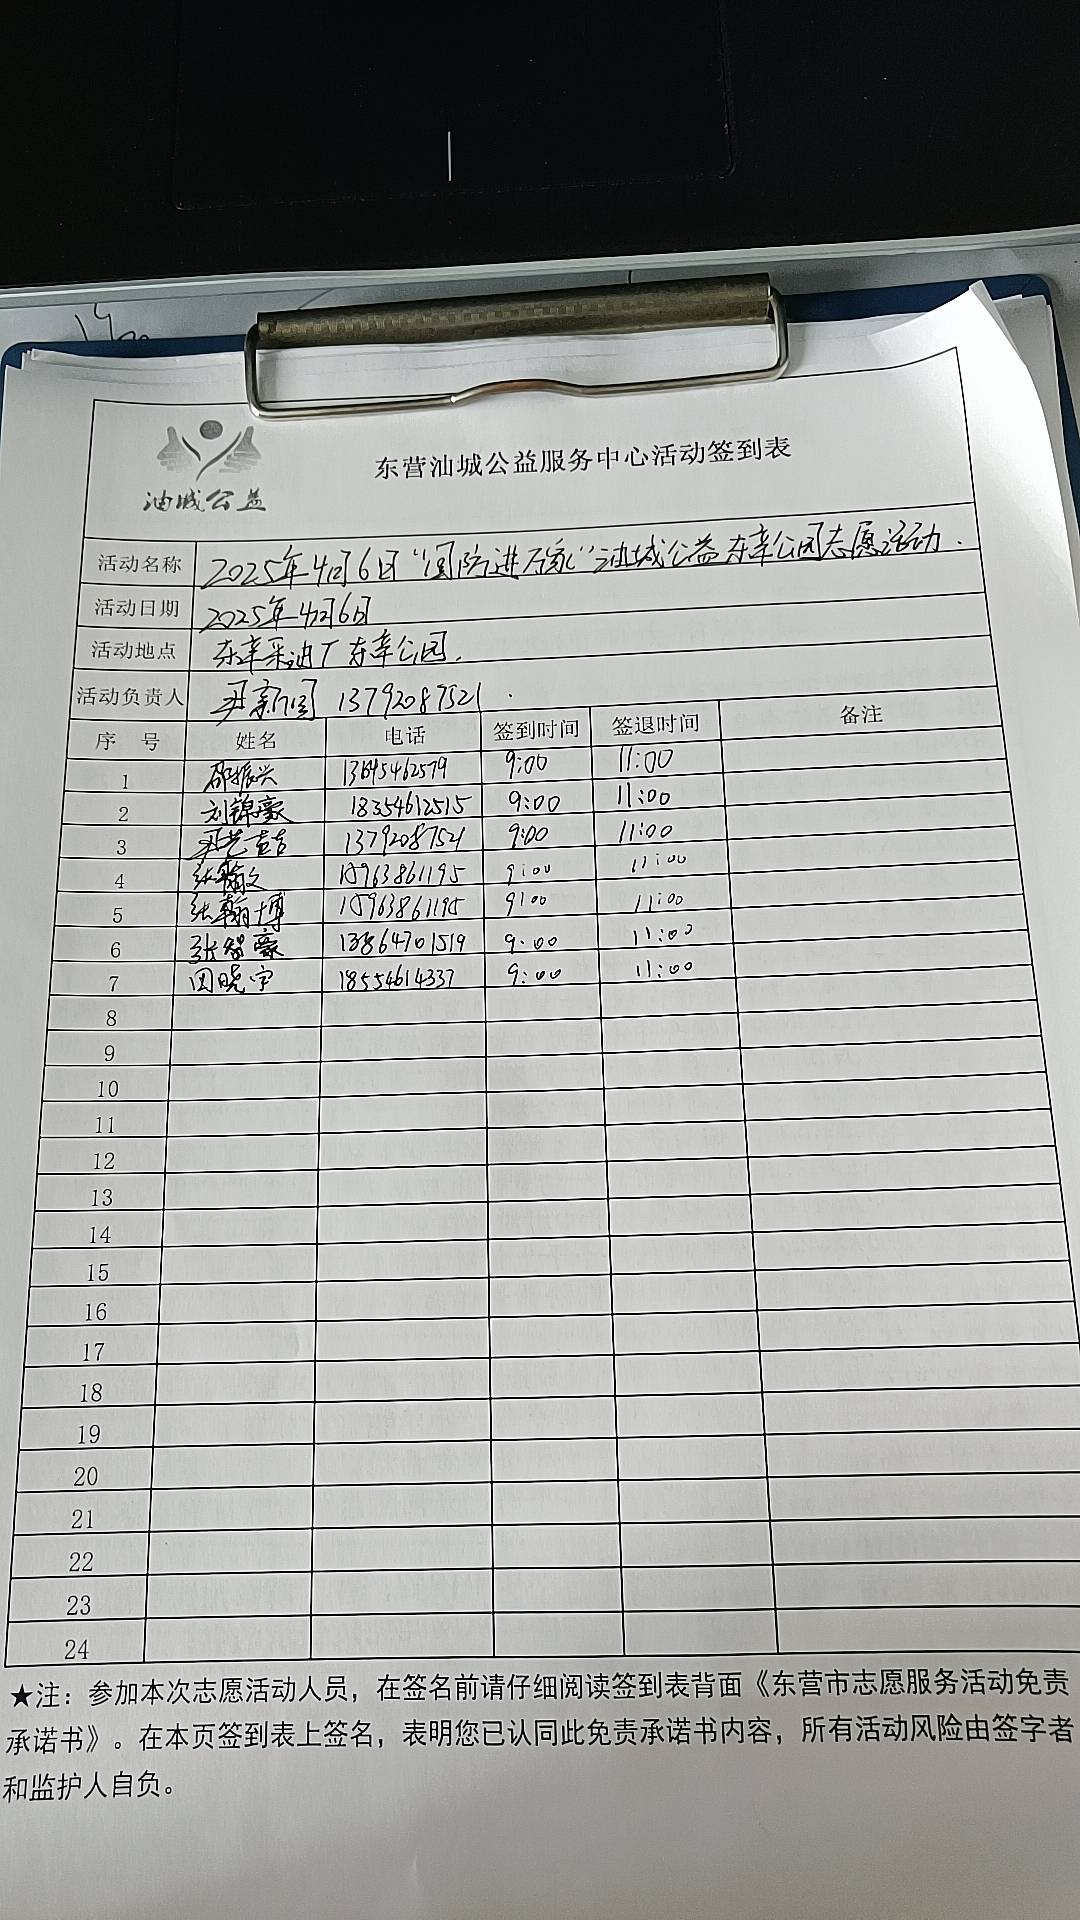 油城公益
东营油城公益服务中心活动签到表
活动名称 2025年4月6日“国防进万家”油城公益东辛公园志愿活动.
活动日期 2025年4月6日
活动地点 东辛采油厂东辛公园.
活动负责人 新国 13792087521.
序 号 姓名 电话 签到时间 签退时间 备注
1 邵振兴 13645462579 9:00 11:00
2 刘锦豪 18354612515 9:00 11:00
3 艺喆 13792087521 9:00 11:00
4 张翰文 15963861195 9:00 11:00
5 张翰博 15963861195 9:00 11:00
6 张智豪 13864701519 9:00 11:00
7 田晓宇 18554614337 9:00 11:00
8
9
10
11
12
13
14
15
16
17
18
19
20
21
22
23
24
★注：参加本次志愿活动人员，在签名前请仔细阅读签到表背面《东营市志愿服务活动免责
承诺书》。在本页签到表上签名，表明您已认同此免责承诺书内容，所有活动风险由签字者
和监护人自负。